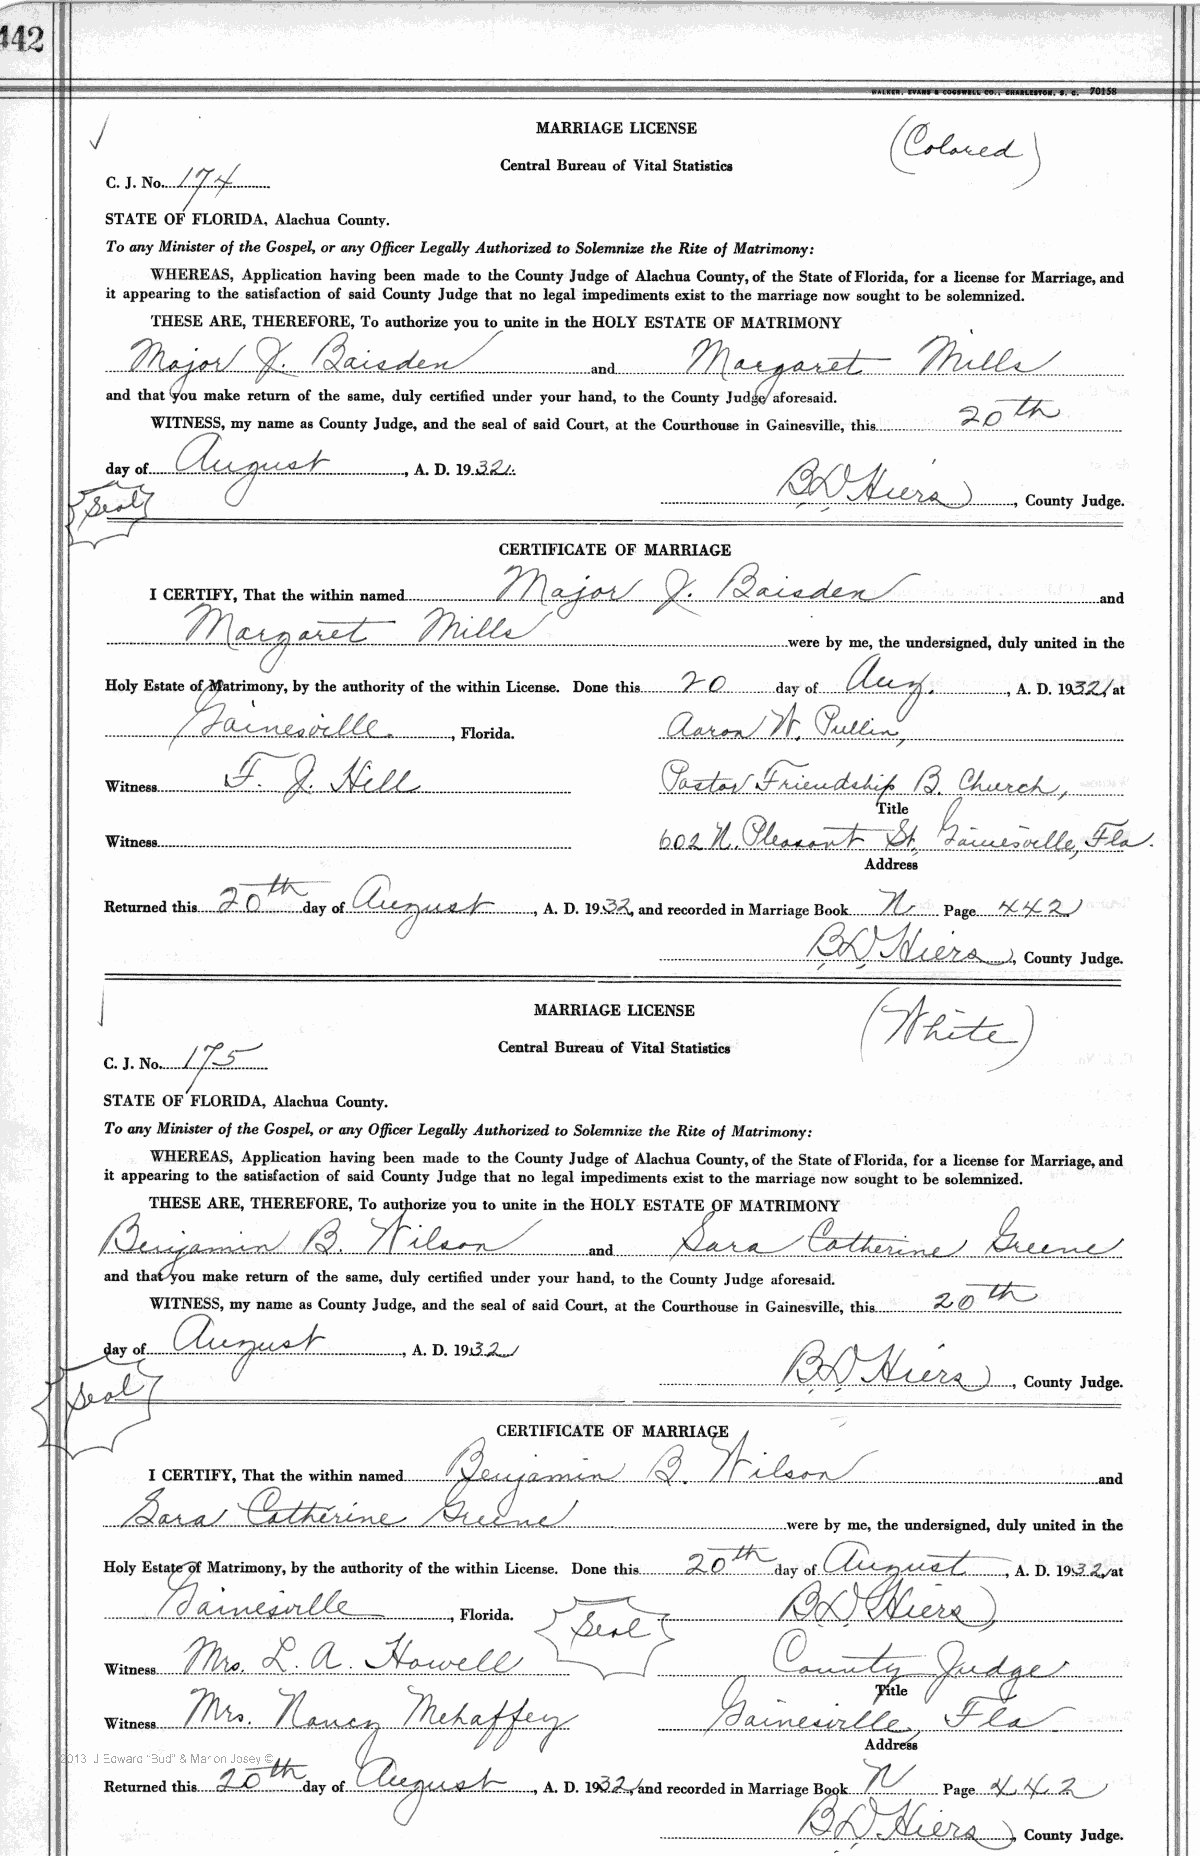 442
WALKER, EVANS & COGSWELL CO., CHARLESTON, S. C. 70158
MARRIAGE LICENSE
(Colored)
Central Bureau of Vital Statistics
C. J. No. 174
STATE OF FLORIDA, Alachua County.
To any Minister of the Gospel, or any Officer Legally Authorized to Solemnize the Rite of Matrimony:
WHEREAS, Application having been made to the County Judge of Alachua County, of the State of Florida, for a license for Marriage, and
it appearing to the satisfaction of said County Judge that no legal impediments exist to the marriage now sought to be solemnized.
THESE ARE, THEREFORE, To authorize you to unite in the HOLY ESTATE OF MATRIMONY
Major J. Baisden and Margaret Mills
and that you make return of the same, duly certified under your hand, to the County Judge aforesaid.
WITNESS, my name as County Judge, and the seal of said Court, at the Courthouse in Gainesville, this 20th
day of August, A. D. 1932.
Seal
B D Hiers, County Judge.
CERTIFICATE OF MARRIAGE
I CERTIFY, That the within named Major J. Baisden and
Margaret Mills were by me, the undersigned, duly united in the
Holy Estate of Matrimony, by the authority of the within License. Done this 20 day of Aug., A. D. 1932, at
Gainesville., Florida. Aaron W. Pullin,
Witness F. J. Hill Pastor Friendship B. Church,
Title
Witness 602 N. Pleasant St. Gainesville, Fla.
Address
Returned this 20th day of August, A. D. 1932, and recorded in Marriage Book N Page 442
B D Hiers, County Judge.
MARRIAGE LICENSE
(White)
Central Bureau of Vital Statistics
C. J. No. 175
STATE OF FLORIDA, Alachua County.
To any Minister of the Gospel, or any Officer Legally Authorized to Solemnize the Rite of Matrimony:
WHEREAS, Application having been made to the County Judge of Alachua County, of the State of Florida, for a license for Marriage, and
it appearing to the satisfaction of said County Judge that no legal impediments exist to the marriage now sought to be solemnized.
THESE ARE, THEREFORE, To authorize you to unite in the HOLY ESTATE OF MATRIMONY
Benjamin B. Wilson and Sara Catherine Greene
and that you make return of the same, duly certified under your hand, to the County Judge aforesaid.
WITNESS, my name as County Judge, and the seal of said Court, at the Courthouse in Gainesville, this 20th
day of August, A. D. 1932
Seal
B D Hiers, County Judge.
CERTIFICATE OF MARRIAGE
I CERTIFY, That the within named Benjamin B. Wilson and
Sara Catherine Greene were by me, the undersigned, duly united in the
Holy Estate of Matrimony, by the authority of the within License. Done this 20th day of August, A. D. 1932, at
Gainesville, Florida. Seal B D Hiers
Witness Mrs. L. A. Howell County Judge
Title
Witness Mrs. Nancy Mehaffey Gainesville, Fla
Address
2013 J Edward "Bud" & Marion Josey ©
Returned this 20th day of August, A. D. 1932, and recorded in Marriage Book N Page 442
B D Hiers, County Judge.